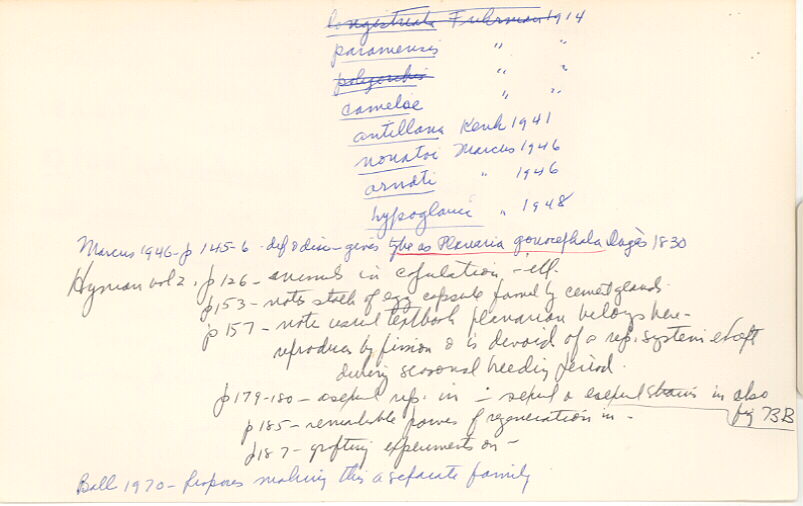 longistriata Fuhrmann 1914
paramensis " "
polyorchis " "
cameliae " "
antillana Kenk 1941
nonatoi Marcus 1946
arndti " 1946
hypoglauca " 1948
Marcus 1946-p 145-6 - def & disc - gives type as Planaria gonocephala Dugès 1830
Hyman vol 2. p 126 - animals in copulation, - ill.
p 153 - note stalk of egg capsule formed by cement glands.
p 157 - note usual textbook planarian belongs here -
reproduces by fission & is devoid of a rep. system except
during seasonal breeding period.
p 179-180 - asexual rep. in - sexual & asexual strains in also
fig 73B
p 185 - remarkable powers of regeneration in -
p 187 - grafting experiments on -
Ball 1970 - Proposes making this a separate family